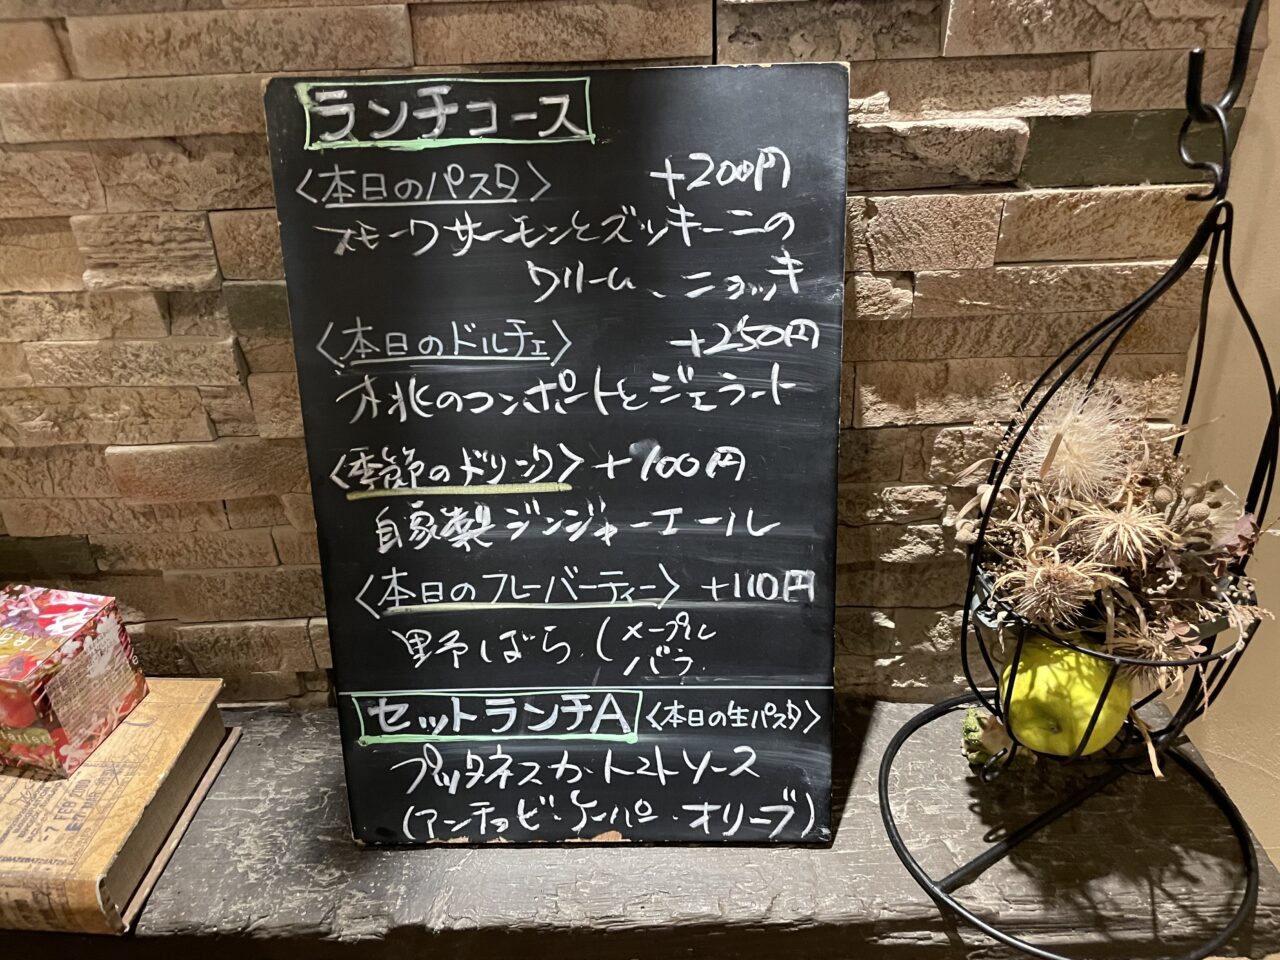 ランチコース
〈本日のパスタ〉 +200円
スモークサーモンとズッキーニの
クリーム、ニョッキ
〈本日のドルチェ〉 +250円
桃のコンポートとジェラート
〈季節のドリンク〉 +100円
自家製ジンジャーエール
〈本日のフレーバーティー〉 +110円
野ばら (メープル
バラ
セットランチA 〈本日の生パスタ〉
プッタネスカ・トマトソース
(アンチョビ・ケーパー・オリーブ)
7 FEB